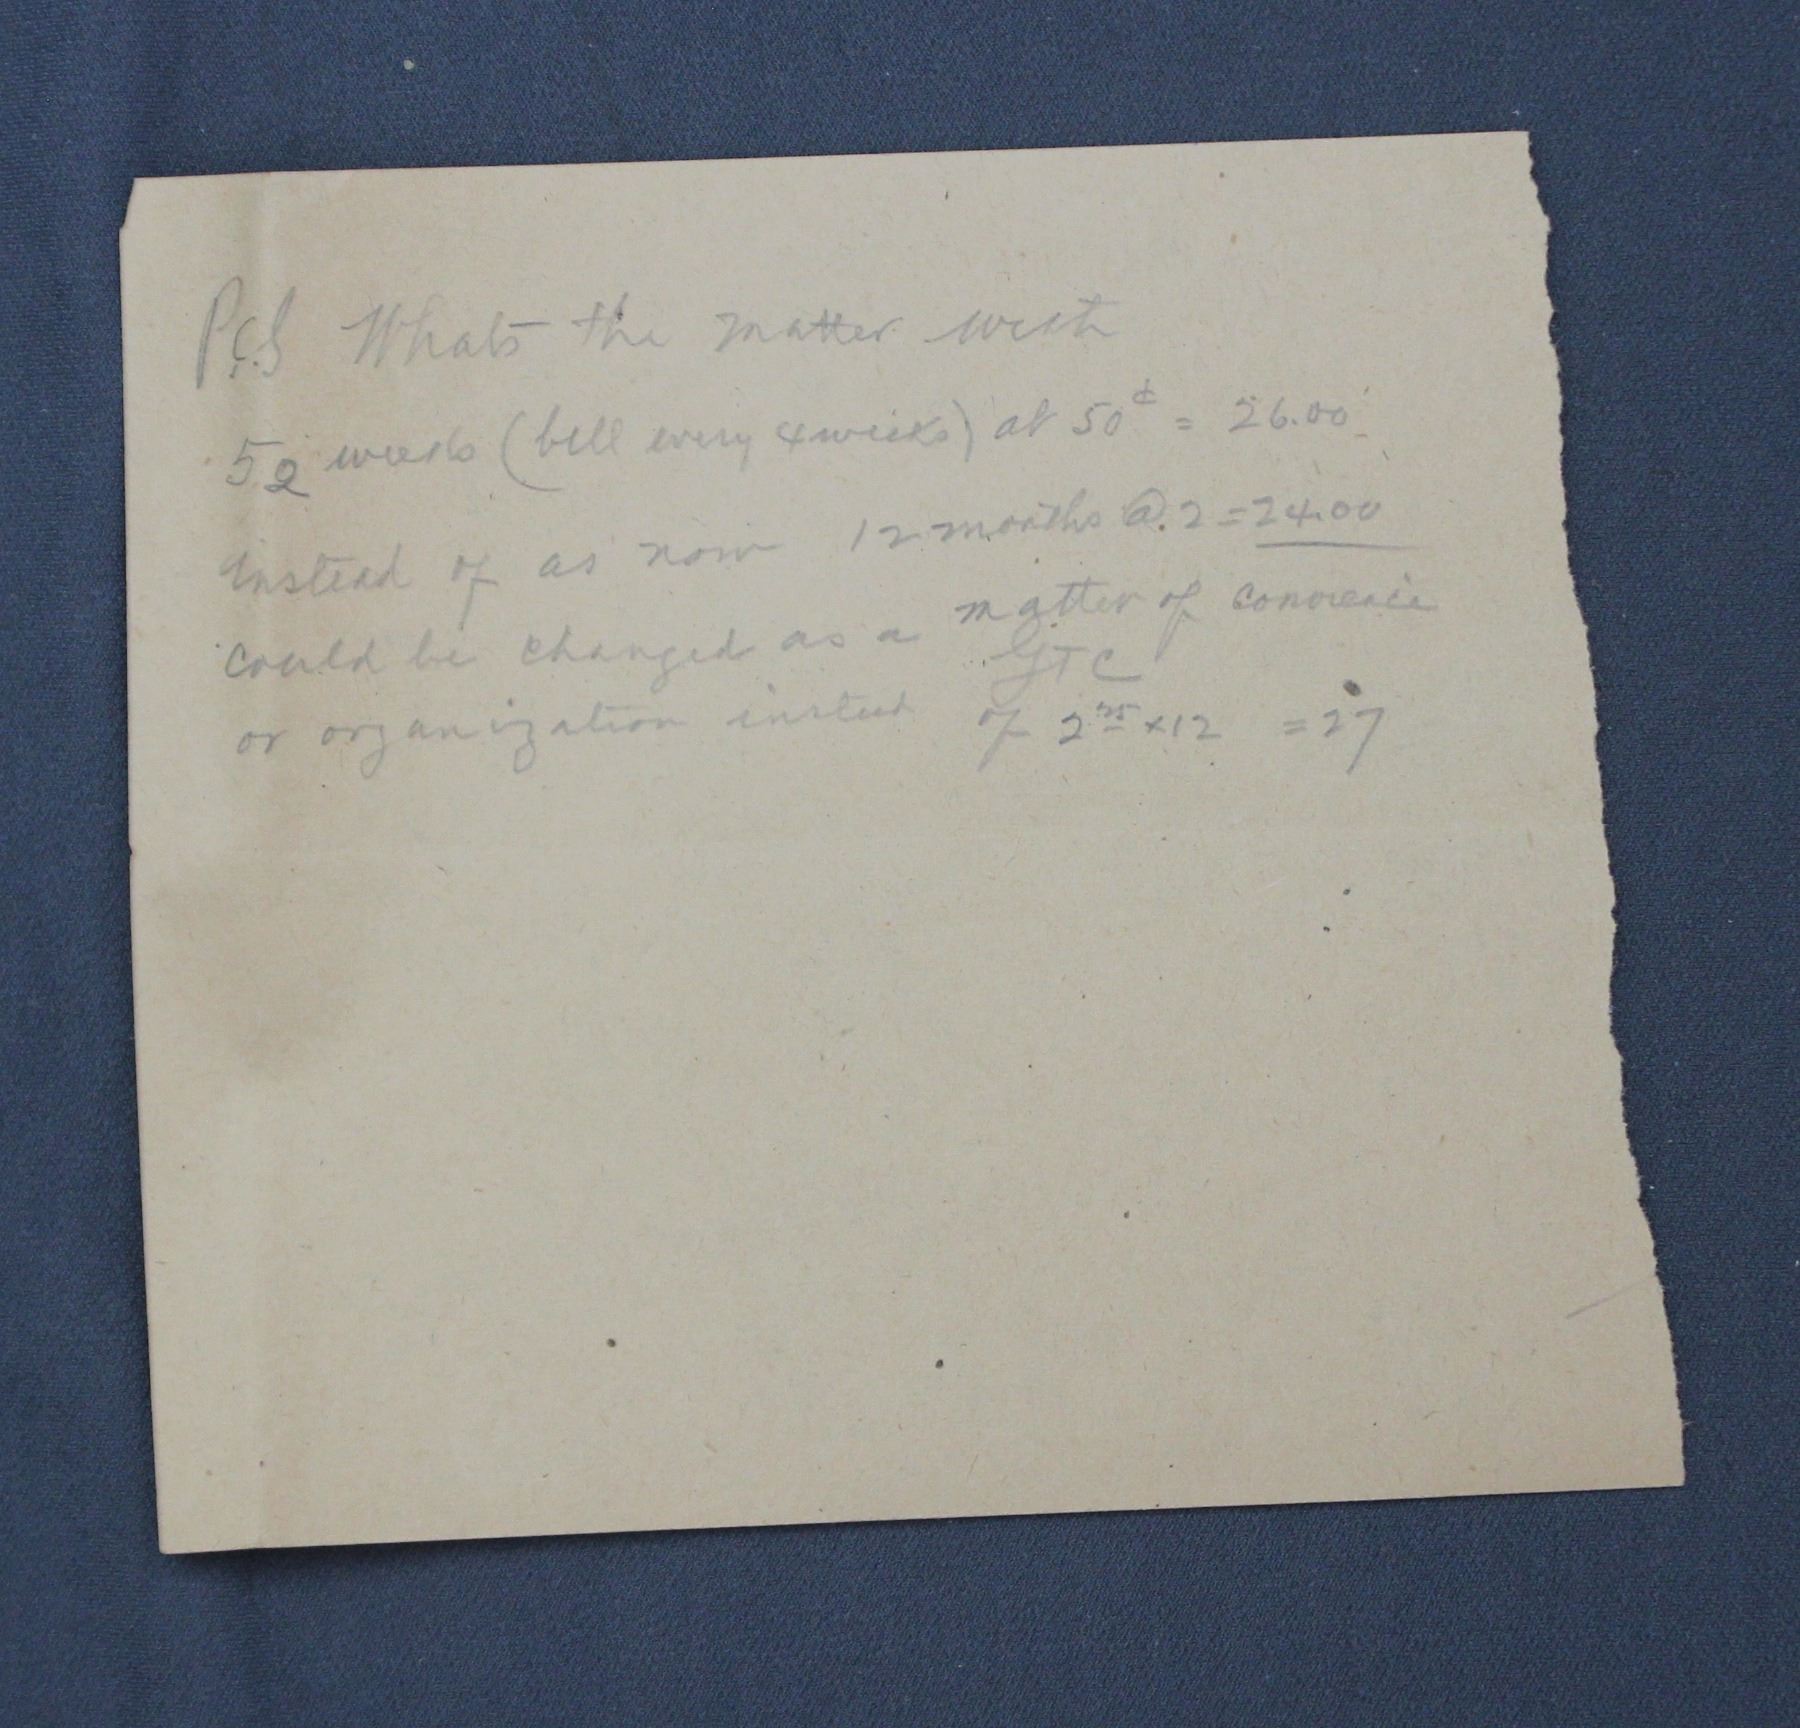 P.C.S Whats the matter with
52 weeks (bill every 4 weeks) at 50¢ = 26.00
instead of as now 12 months @ 2 = 24.00
could be changed as a matter of
GTC
or organization instead of 2 25 × 12 = 27